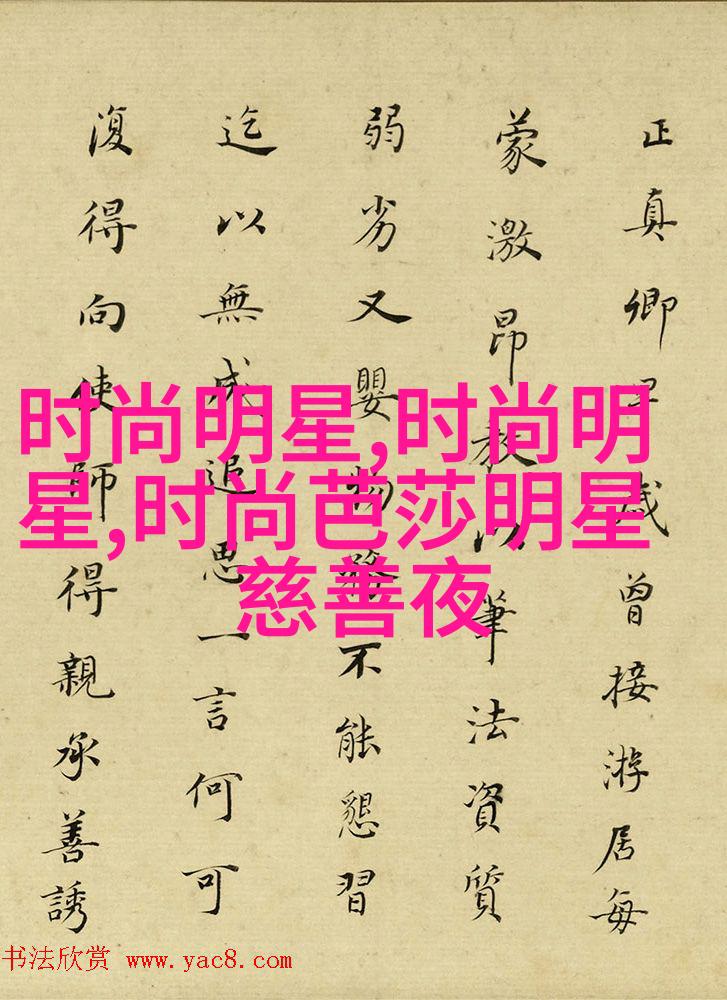 正真卿早歲曾接游居每
蒙激昂教以筆法資質
弱劣又嬰物務不能懇習
迄以無成追思一言何可
復得向使師得親承善誘
时尚明星,时尚明
星,时尚芭莎明星
慈善夜
书法欣赏 www.yac8.com